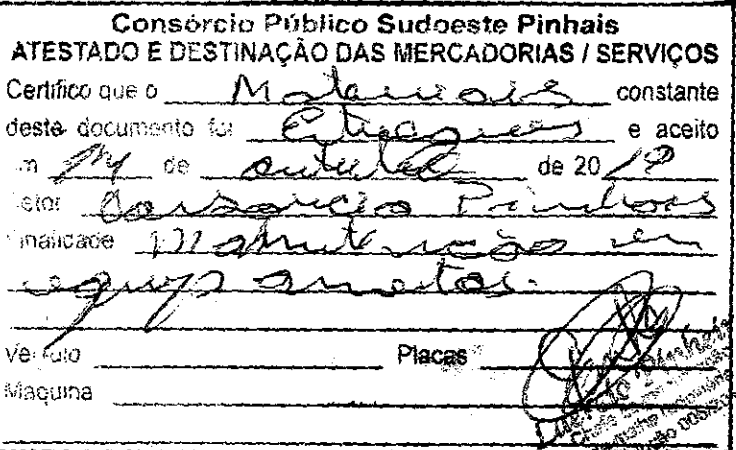 Consórcio Público Sudoeste Pinhais
ATESTADO E DESTINAÇÃO DAS MERCADORIAS / SERVIÇOS
Certifico que o Materiais constante
deste documento foi e aceito
em de outubro de 20 19
Setor Consórcio Pinhais
Finalidade Manutenção em
equipamentos.
Veículo Placas
Maquina